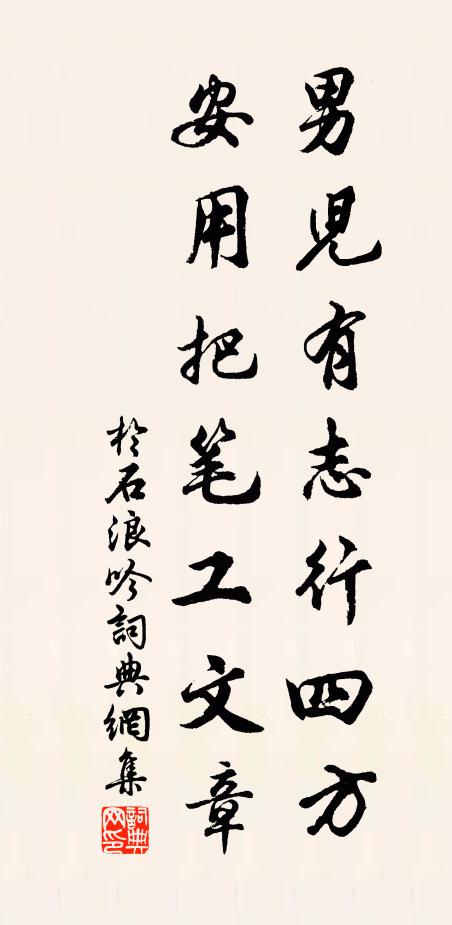 男児有志行四方
安用把笔工文章
於石浪吟詞典網集
詞典
网印